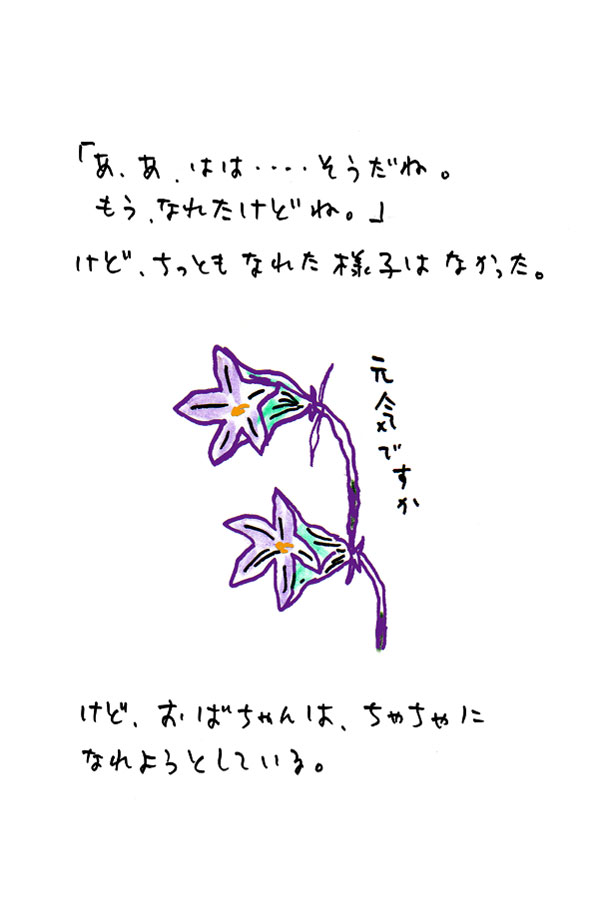 「あ、あ、はは‥‥そうだね。
もう、なれたけどね。」
けど、ちっともなれた様子はなかった。
元気ですか
けど、おばちゃんは、ちゃちゃに
なれようとしている。